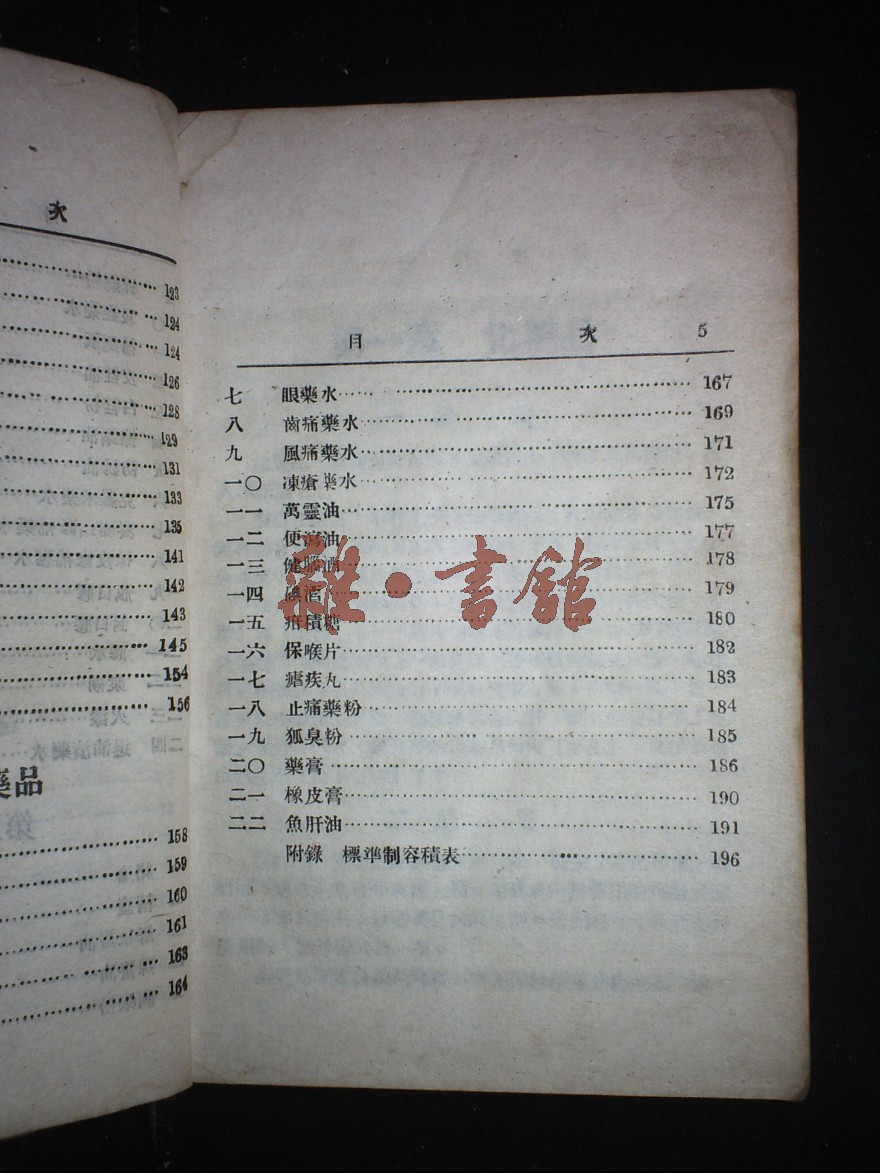 次
123
124
124
126
128
129
131
133
135
141
142
143
145
154
156
藥品
158
159
160
161
163
164
目 次 5
七 眼藥水 167
八 齒痛藥水 169
九 風痛藥水 171
一〇 凍瘡藥水 172
一一 萬靈油 175
一二 便瀉油 177
一三 健腦酒 178
一四 碘酒 179
一五 疳積糖 180
一六 保喉片 182
一七 瘧疾丸 183
一八 止痛藥粉 184
一九 狐臭粉 185
二〇 藥膏 186
二一 橡皮膏 190
二二 魚肝油 191
附錄 標準制容積表 196
雜·書館